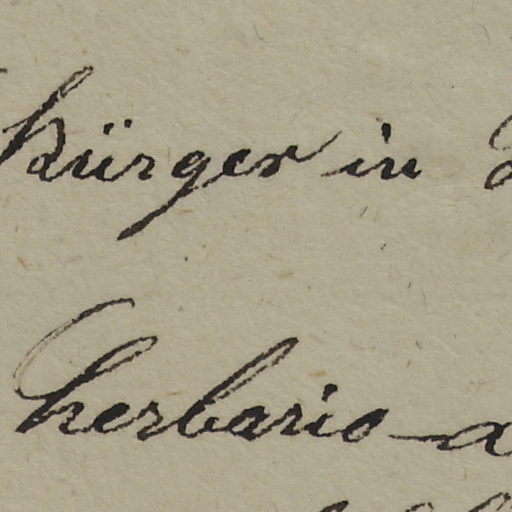 Bürger in
herbario a